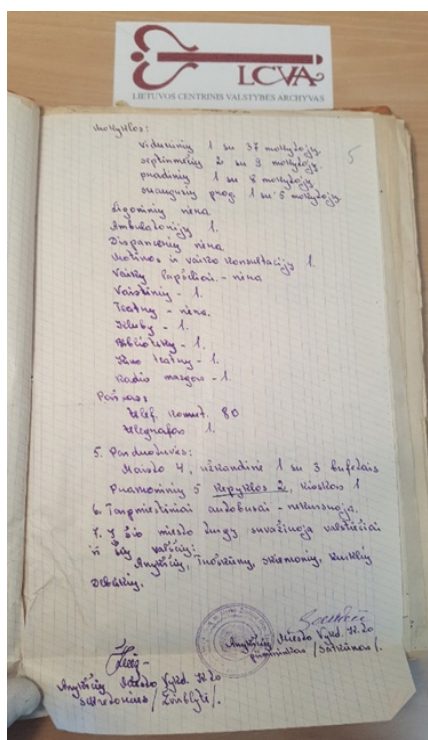 LCVA
LIETUVOS CENTRINIS VALSTYBĖS ARCHYVAS
5
Mokyklos:
vidurinių 1 su 37 mokytojų.
septinmečių 2 su 9 mokytojų
pradinių 1 su 8 mokytojų
suaugusių prog. 1 su 6 mokytojų.
Ligoninių nėra
Ambulatorijų 1.
Dispanserių nėra
Motinos ir vaiko konsultacijų 1.
Vaikų lopšeliai - nėra
Vaistinių - 1.
Teatrų - nėra.
Klubų - 1.
Bibliotekų - 1.
Kino teatrų - 1.
Radio mazgas - 1.
Paštas:
telef. komut. 80
telegrafas 1.
5. Parduotuvės:
Maisto 4, užkandinė 1 su 3 bufetais
Pramoninių 5 Kepyklos 2, kioskas 1
6. Tarpmiestiniai autobusai - nekursuoja.
7. Į šio miesto turgų suvažiuoja valstiečiai
iš šių valsčių:
Anykščių, Troškūnų, Skiemonių, Kurklių
Debeikių.
Anykščių Miesto Vykd. K-to
pirmininkas /Satkūnas/.
Anykščių Miesto Vykd. K-to
sekretorius / Žvirblytė/.